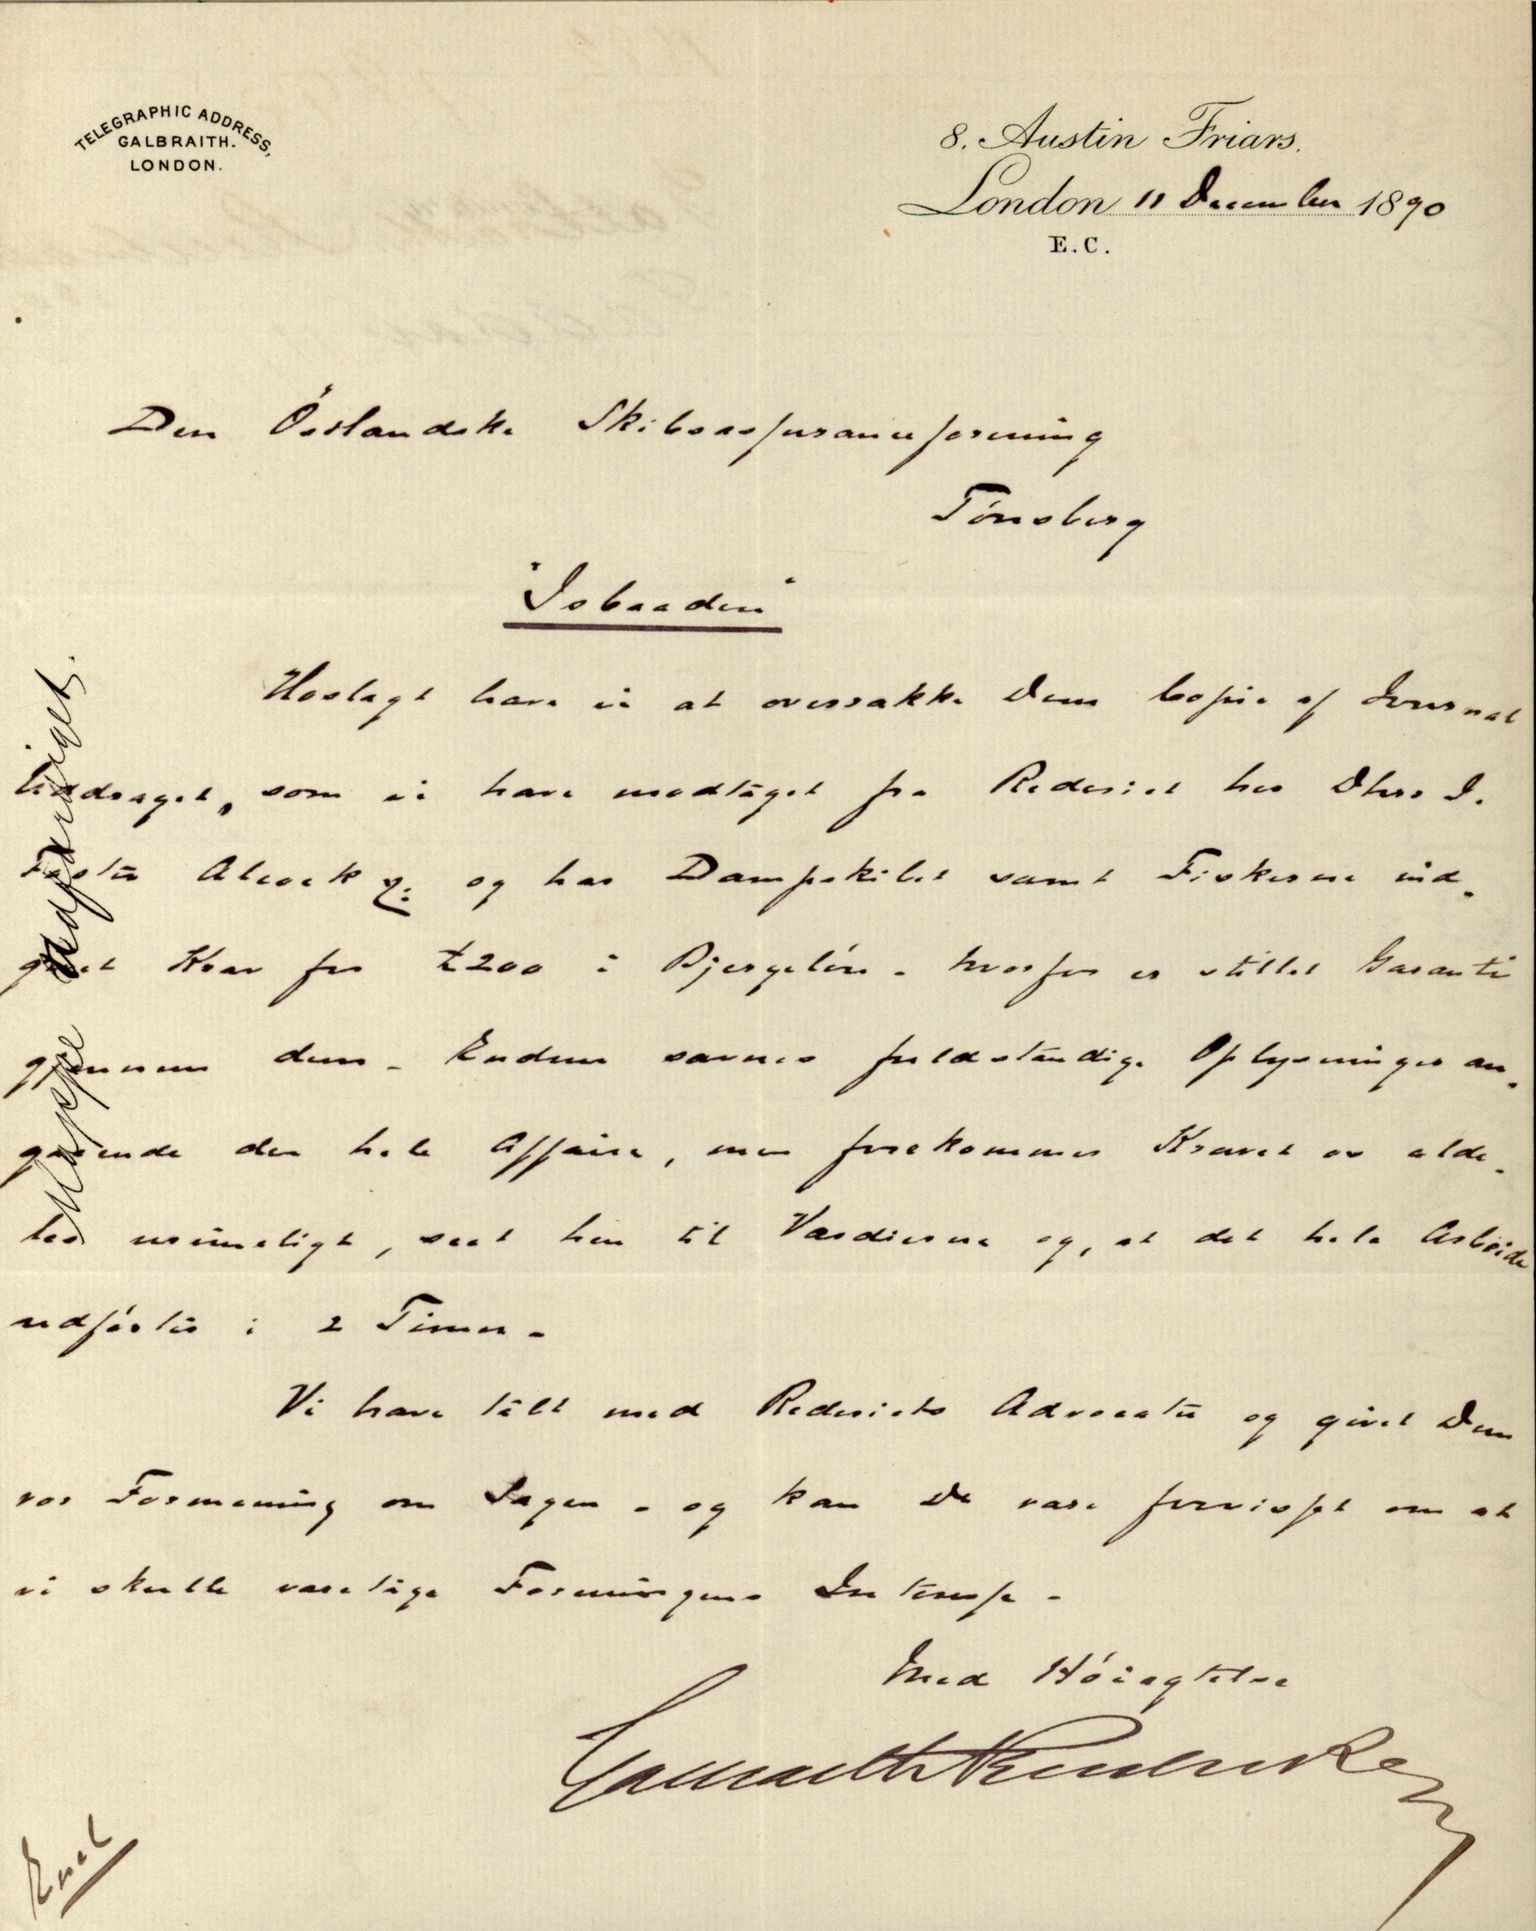 TELEGRAPHIC ADDRESS,
GALBRAITH.
LONDON.
8. Austin Friars.
London 11 December 1890
E.C.
Den Östlandske Skibsassuranceforening
Tönsberg
"Isbaaden"
Hoslagt have vi at overrække Dem Copie af Journal
Uddraget, som vi have modtaget fra Rederiet hos Dhrr I.
Foster Alcock & og har Dampskibet samt Fiskerne ind-
givet Krav for £200 i Bjergelön - hvorfor er stillet Garanti
gjennem dem - Endnu savnes fuldstændige Oplysninger an-
gaaende den hele Affaire, men forekommer Kravet os alde-
les urimeligt, seet hen til Værdierne og, at det hele Arbeide
udförtes i 2 Timer -
Vi have talt med Rederiets Advocater og givet Dem
vor Formening om Sagen - og kan De være forvisset om at
vi skulle varetage Foreningens Interesse -
Med Höiagtelse
Encl
Mappe udfærdiget.